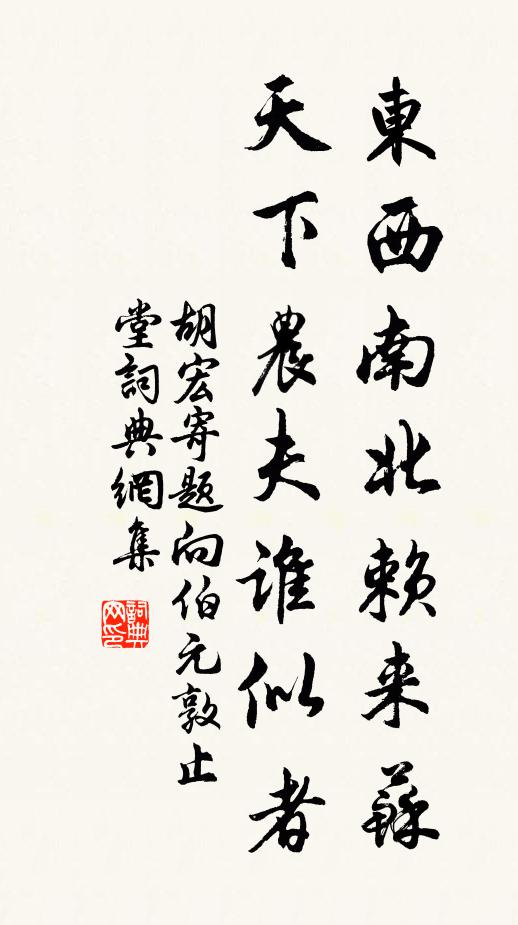 東西南北賴来蘇
天下農夫誰似者
胡宏寄题向伯元敦止
堂詞典網集
詞典网印